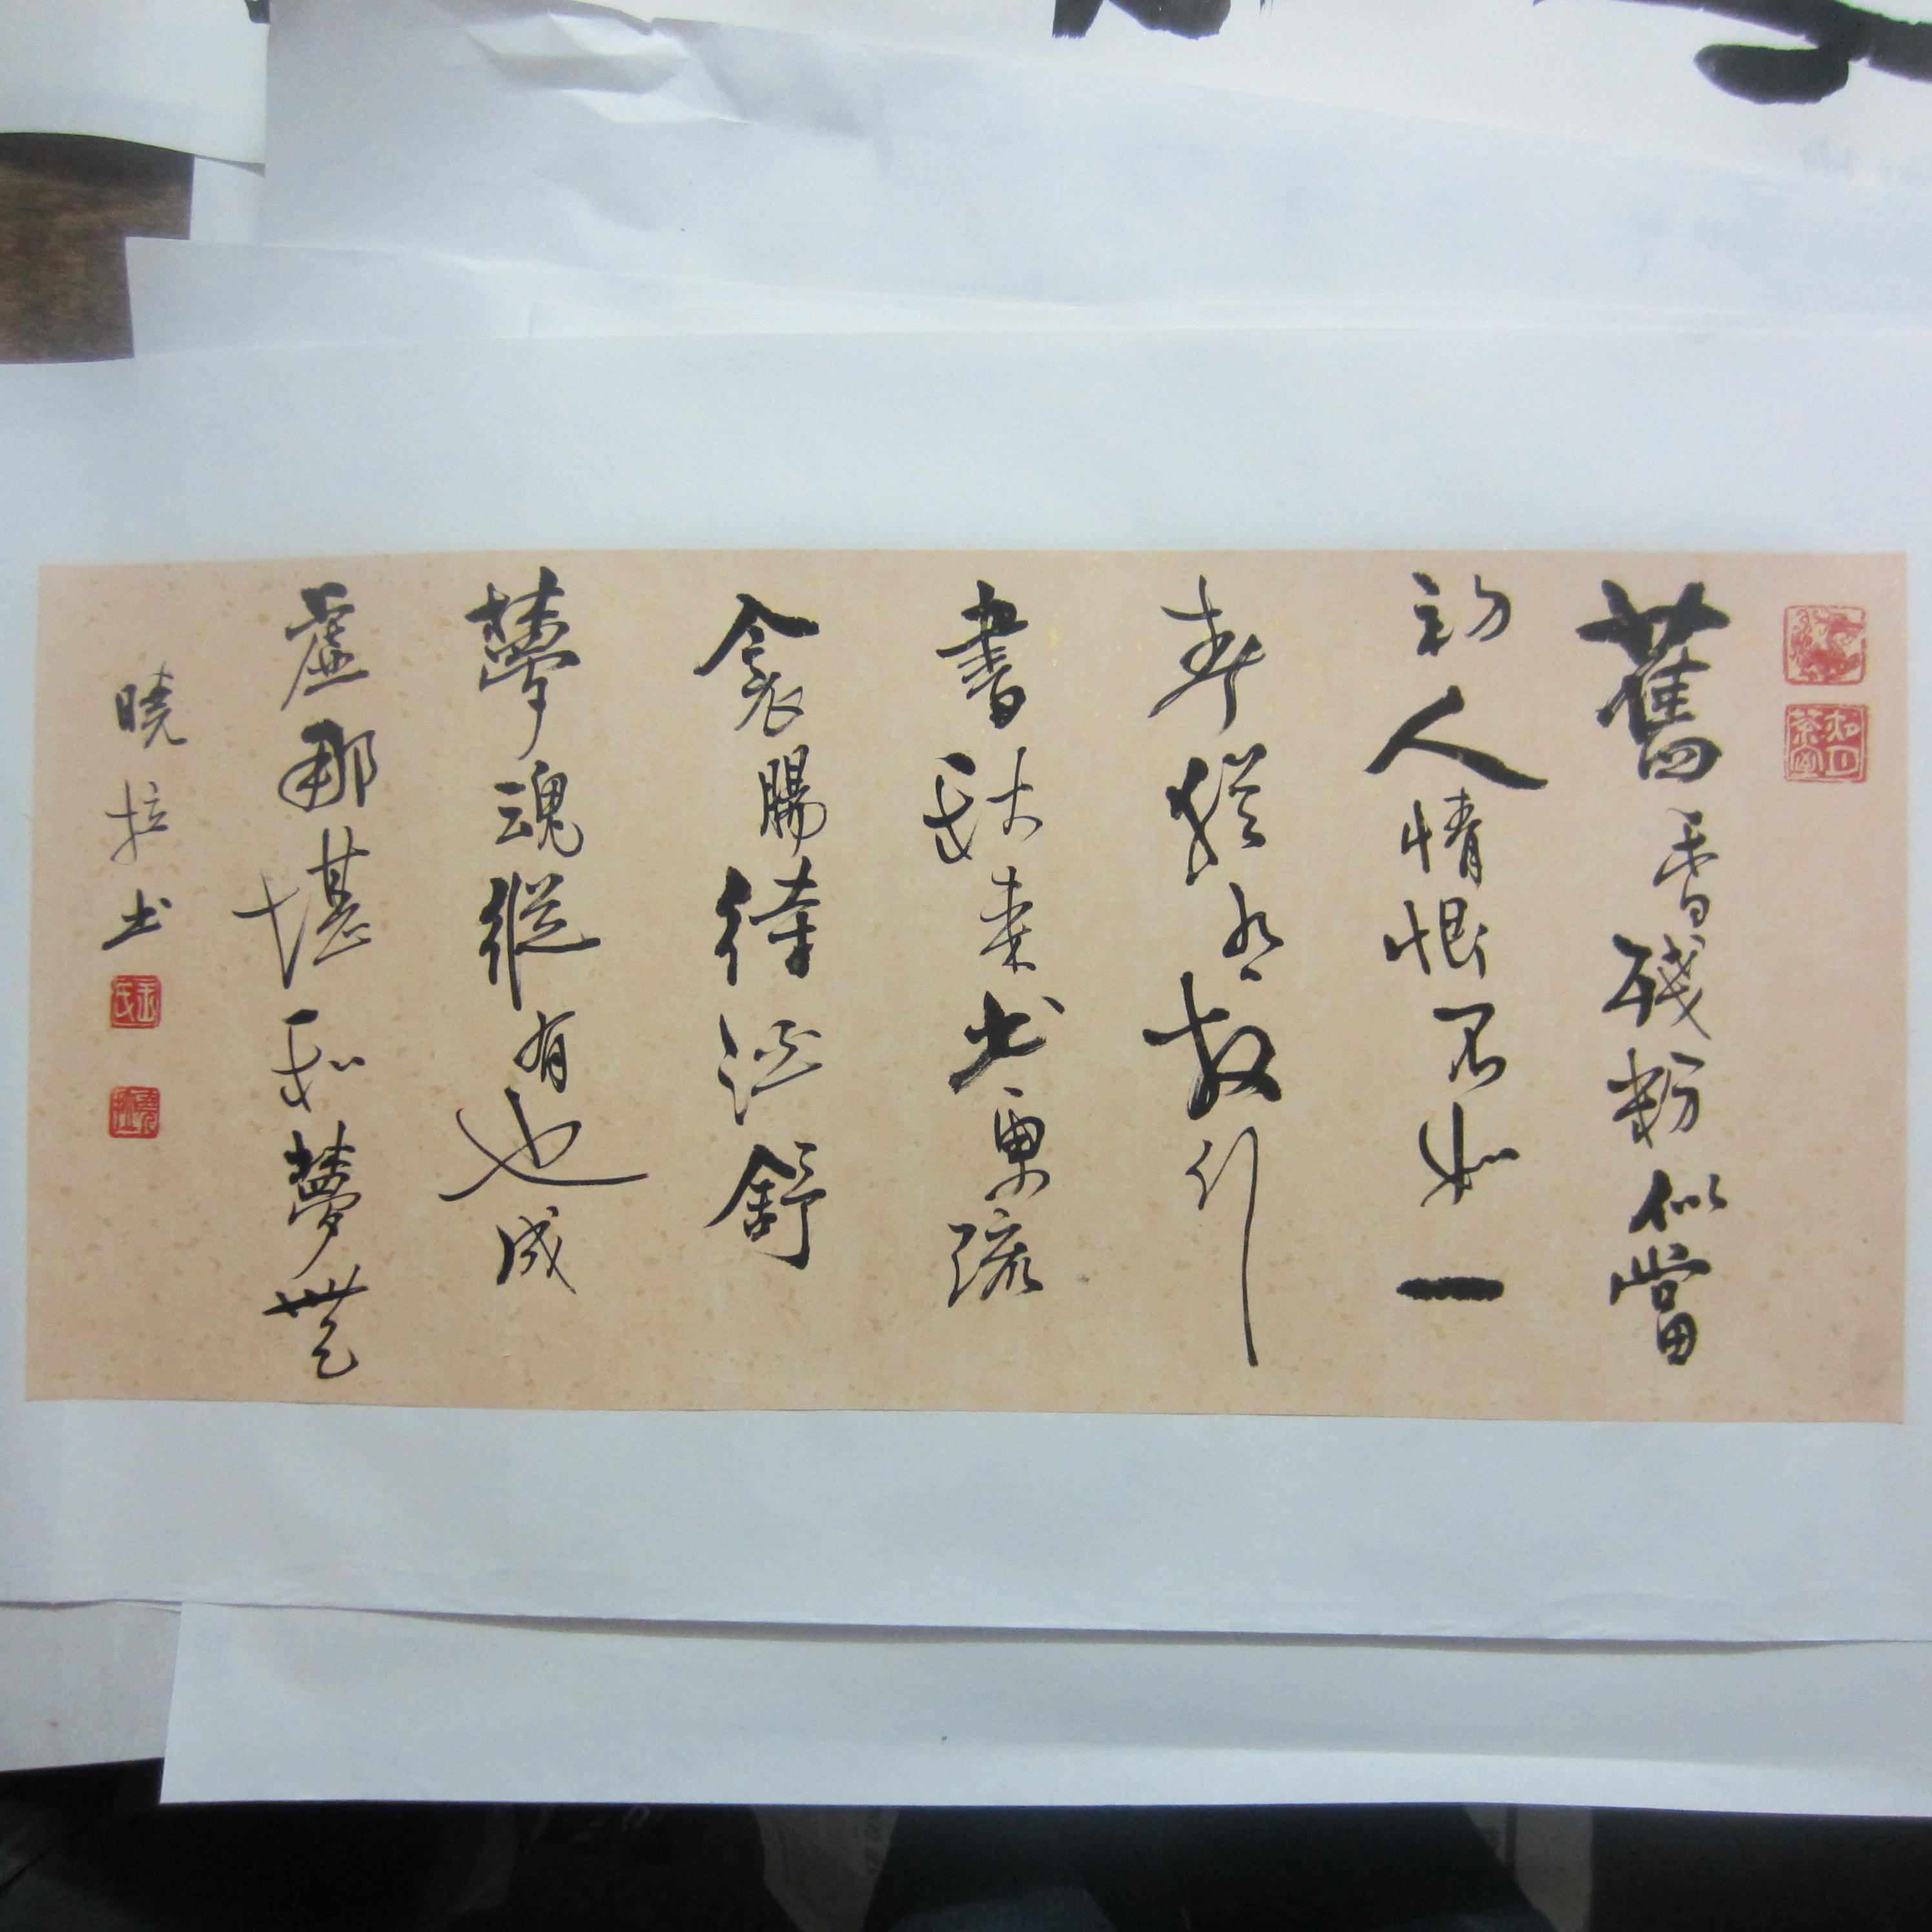 舊香殘粉似當
初人情恨不如一
春猶有數行
書秋來书更疏
衾腸待酒舒
夢魂縱有也成
虛那堪和夢無
晓拉书